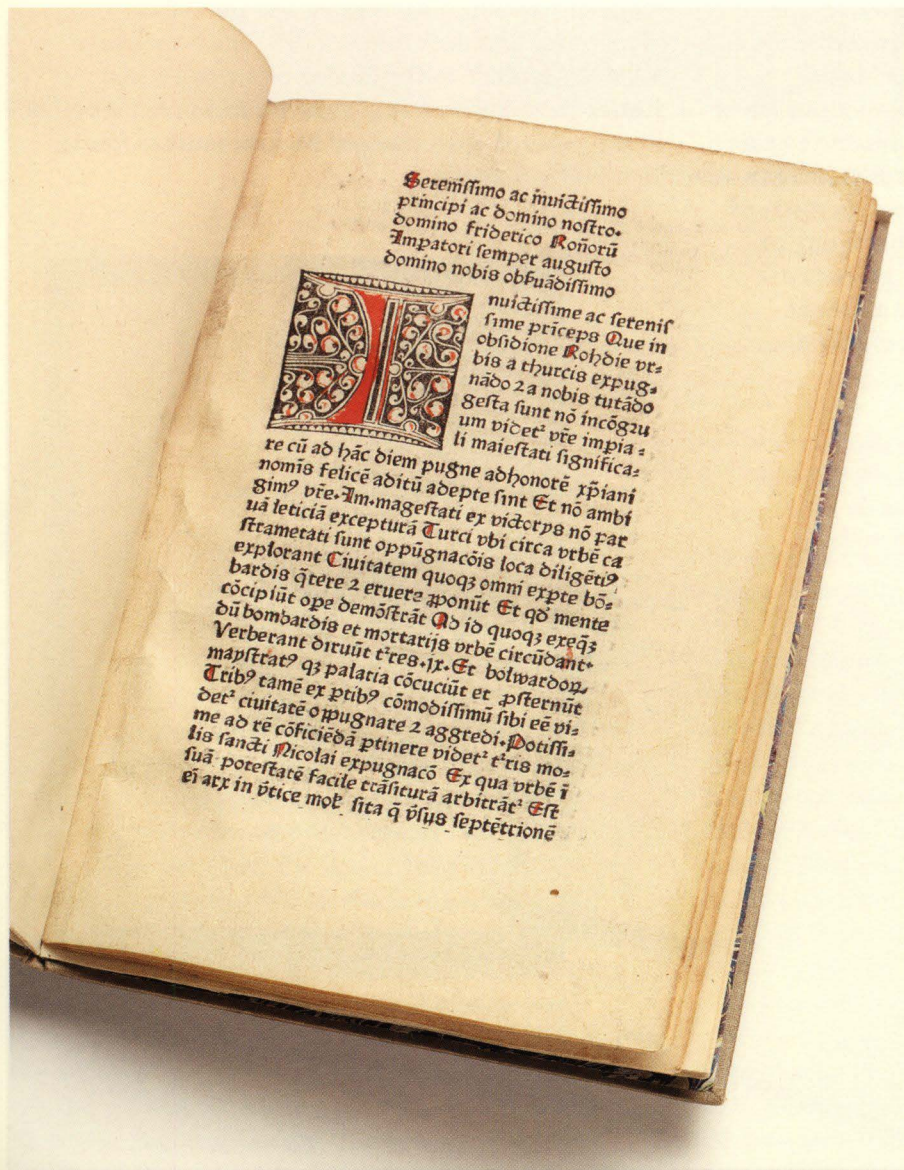 Serenissimo ac inuictissimo
principi ac domino nostro.
domino friderico Roñorū
Impatori semper augusto
domino nobis obẜuãdissimo
Inuictissime ac serenis
sime prīceps Que in
obsidione Rohdie vr-
bis a thurcis expug-
nãdo 2 a nobis tutãdo
gesta sunt nõ incõgru
um videtᷣ vr̄e impia-
li maiestati significa-
re cū ad hãc diem pugne adhonorē xp̄iani
nomīs felicē aditū adepte sint Et nõ ambi
gimꝰ vr̄e.Im.magestati ex victorys nõ par
uã leticiã excepturã Turci vbi circa vrbē ca
strametati sunt oppūgnacõis loca diligētiꝰ
explorant Ciuitatem quoqꝫ omni expte bõ-
bardis q̄tere 2 eruere ꝓponūt Et qđ mente
cõcipiūt ope demõstrãt Ad id quoqꝫ exeqꝫ
dū bombardis et mortarijs vrbē circūdant.
Verberant diruūt tᷣres.ix.Et bolwardoꝝ
maystratꝰ qꝫ palatia cõcuciūt et ꝓsternūt
Tribꝰ tamē ex ptibꝰ cõmodissimū sibi eē vi-
detᷣ ciuitatē oppugnare 2 aggredi.Potissi-
me ad rē cõficiēdã ptinere videtᷣ tᷣris mo-
lis sancti Nicolai expugnacõ Ex qua vrbē ī
suã potestatē facile trãsiturã arbitrãtᷣ Est
eī arx in v̄tice mol̵ sita q̄ v̄sus septētrionē